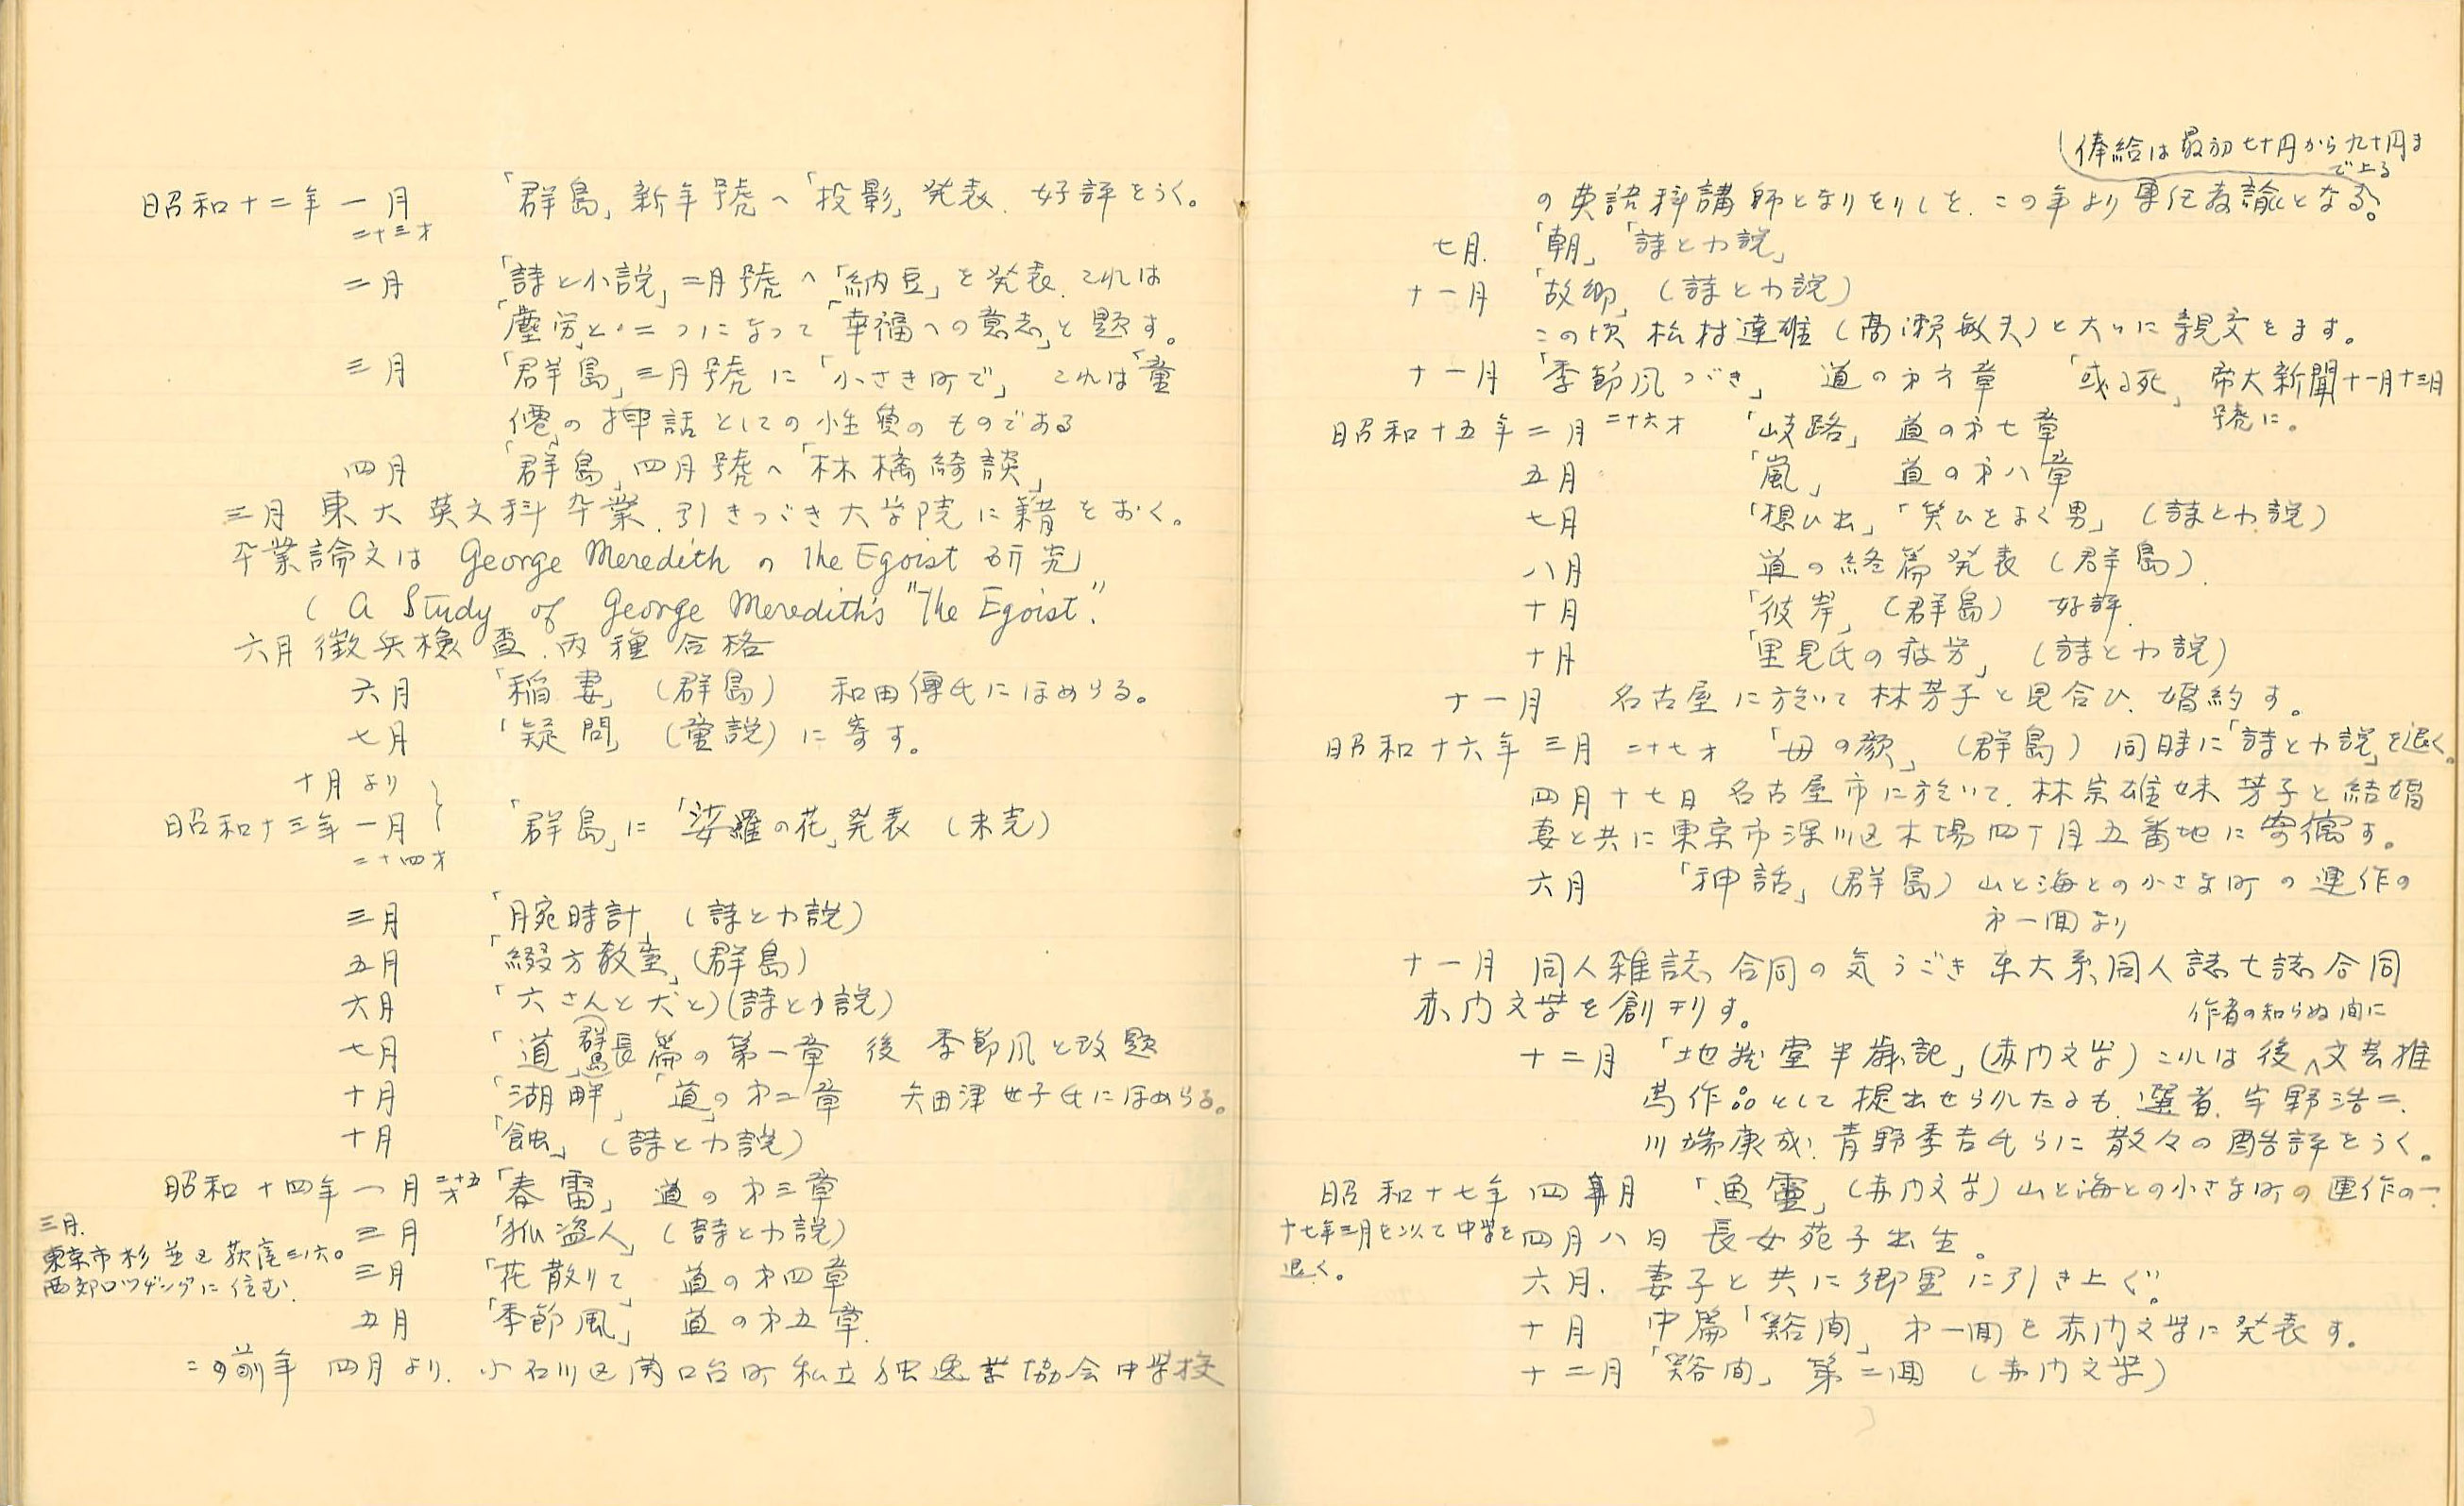 昭和十二年 一月 「群島」新年號へ「投影」発表. 好評をうく。
二十三才
二月 「詩と小説」二月號へ「納豆」を発表. これは
「塵労」と一つになって「幸福への意志」と題す。
三月 「群島」三月號に「小さき町で」 これは「童
僊」の挿話としての性質のものである
四月 「群島」四月號へ「林檎綺談」
三月 東大英文科卒業. 引きつゞき大学院に籍をおく。
卒業論文は George Meredith の The Egoist 研究
( A Study of George Meredith's "The Egoist."
六月 徴兵検査. 丙種合格
六月 「稲妻」(群島) 和田傳氏にほめらる。
七月 「疑問」(童説)に寄す。
十月より
昭和十三年 一月 「群島」に「娑羅の花」発表 (未完)
二十四才
三月 「腕時計」(詩と小説)
五月 「綴方教室」(群島)
六月 「六さんと犬と」(詩と小説)
七月 「道」(群島)長篇の第一章 後 季節風と改題
十月 「湖畔」「道」の才二章 矢田津世子氏にほめらる。
十月 「蝕」(詩と小説)
昭和十四年 一月 二十五才 「春雷」 道の才三章
三月 「狐盗人」(詩と小説)
三月.
東京市杉並区荻窪三ノ六〇
西郊ロッヂングに住む.
三月 「花散りて」 道の才四章
五月 「季節風」 道の才五章.
この前年 四月より. 小石川区関口台町私立独逸学協会中学校
(俸給は最初七十円から九十円ま
で上る
の英語科講師となりをりしを. この年より専任教諭となる。
七月. 「朝」「詩と小説」
十一月 「故郷」(詩と小説)
この頃 松村達雄(高瀬敏夫)と大いに親交をます。
十一月 「季節風つゞき」 道の才六章 「或る死」帝大新聞十一月十三日
號に。
昭和十五年 二月 二十六才 「岐路」 道の才七章
五月 「嵐」 道の才八章
七月 「想ひ出」「笑ひをまく男」(詩と小説)
八月 道の終篇発表(群島).
十月 「彼岸」(群島) 好評.
十月 「里見氏の疲労」(詩と小説)
十一月 名古屋に於いて林芳子と見合ひ. 婚約す。
昭和十六年 三月 二十七才 「母の顔」(群島) 同時に「詩と小説」を退く。
四月十七日 名古屋市に於いて. 林宗雄妹芳子と結婚
妻と共に東京市深川区木場四丁目五番地に寄寓す。
六月 「神話」(群島) 山と海との小さな町の連作の
才一回より
十一月 同人雑誌合同の気うごき 東大系同人誌七誌合同
赤門文学を創刊す。
作者の知らぬ間に
十二月 「地蔵堂半歳記」(赤門文学) これは後^文芸推
薦作品として提出せられたるも. 選者. 宇野浩二.
川端康成. 青野季吉氏らに散々の酷評をうく。
昭和十七年 四月 「魚靈」(赤門文学) 山と海との小さな町の連作の一
十七年三月を以て中学を
退く。
四月八日 長女苑子出生。
六月. 妻子と共に郷里に引き上ぐ。
十月 中篇「谿間」才一回を赤門文学に発表す。
十二月 「谿間」第二回 (赤門文学)